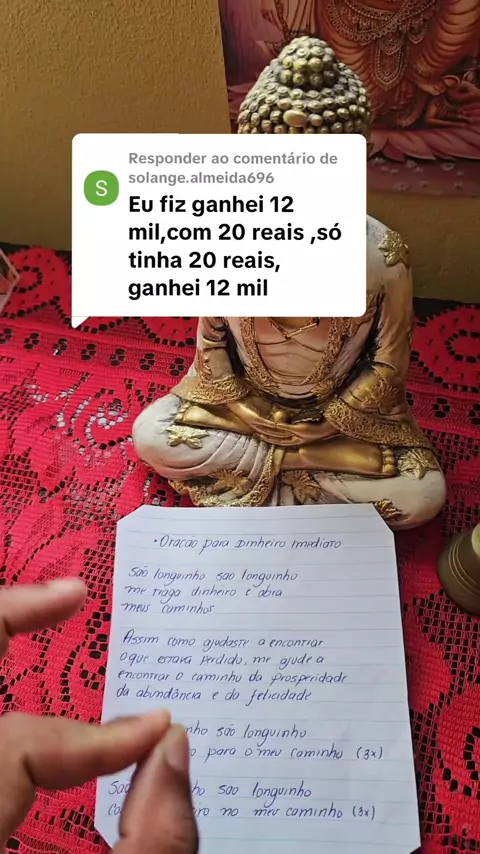 Responder ao comentário de
solange.almeida696
S
Eu fiz ganhei 12
mil,com 20 reais ,só
tinha 20 reais,
ganhei 12 mil
• Oração para Dinheiro Imediato
São longuinho sao longuinho
me traga dinheiro e abra
meus caminhos
Assim como ajudaste a encontrar
o que estava perdido, me ajude a
encontrar o caminho da prosperidade
da abundância e da felicidade
são longuinho
para o meu caminho (3x)
sao longuinho
no meu caminho (3x)